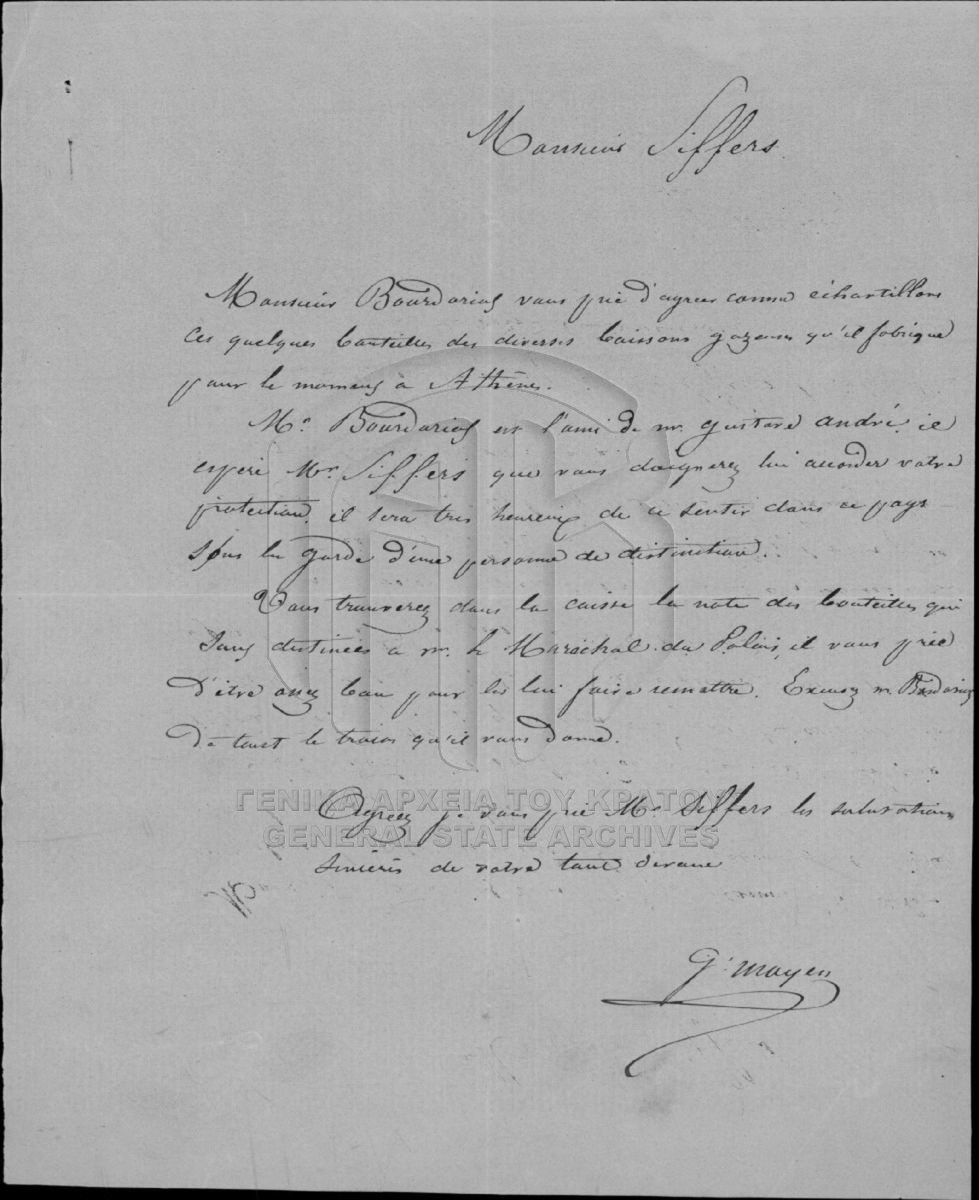 Monsieur Siffers.
Monsieur Bourdarias vous prie d'agreer comme échantillons
Ces quelques bouteilles des diverses boissons gazeuses qu'il fabrique
pour le moment à Athènes.
Mr. Bourdarias est l'ami de mr. gustave andré. il
espere Mr. Siffers que vous daignerez lui accorder votre
protection, il sera tres heureux de ce sentir dans ce pays
sous la garde d'une personne de distinction.
Vous trouverez dans la caisse la note des bouteilles qui
sont destinées a mr. le Maréchal du Palais, il vous prie
d'être assez bon pour les lui faire remettre. Excusez mr. Bourdarias
de tout le tracas qu'il vous donne.
Agreez je vous prie Mr. Siffers les salutations
sincères de votre tout dévoué
G. Moyen
ΓΕΝΙΚΑ ΑΡΧΕΙΑ ΤΟΥ ΚΡΑΤΟΥΣ
GENERAL STATE ARCHIVES